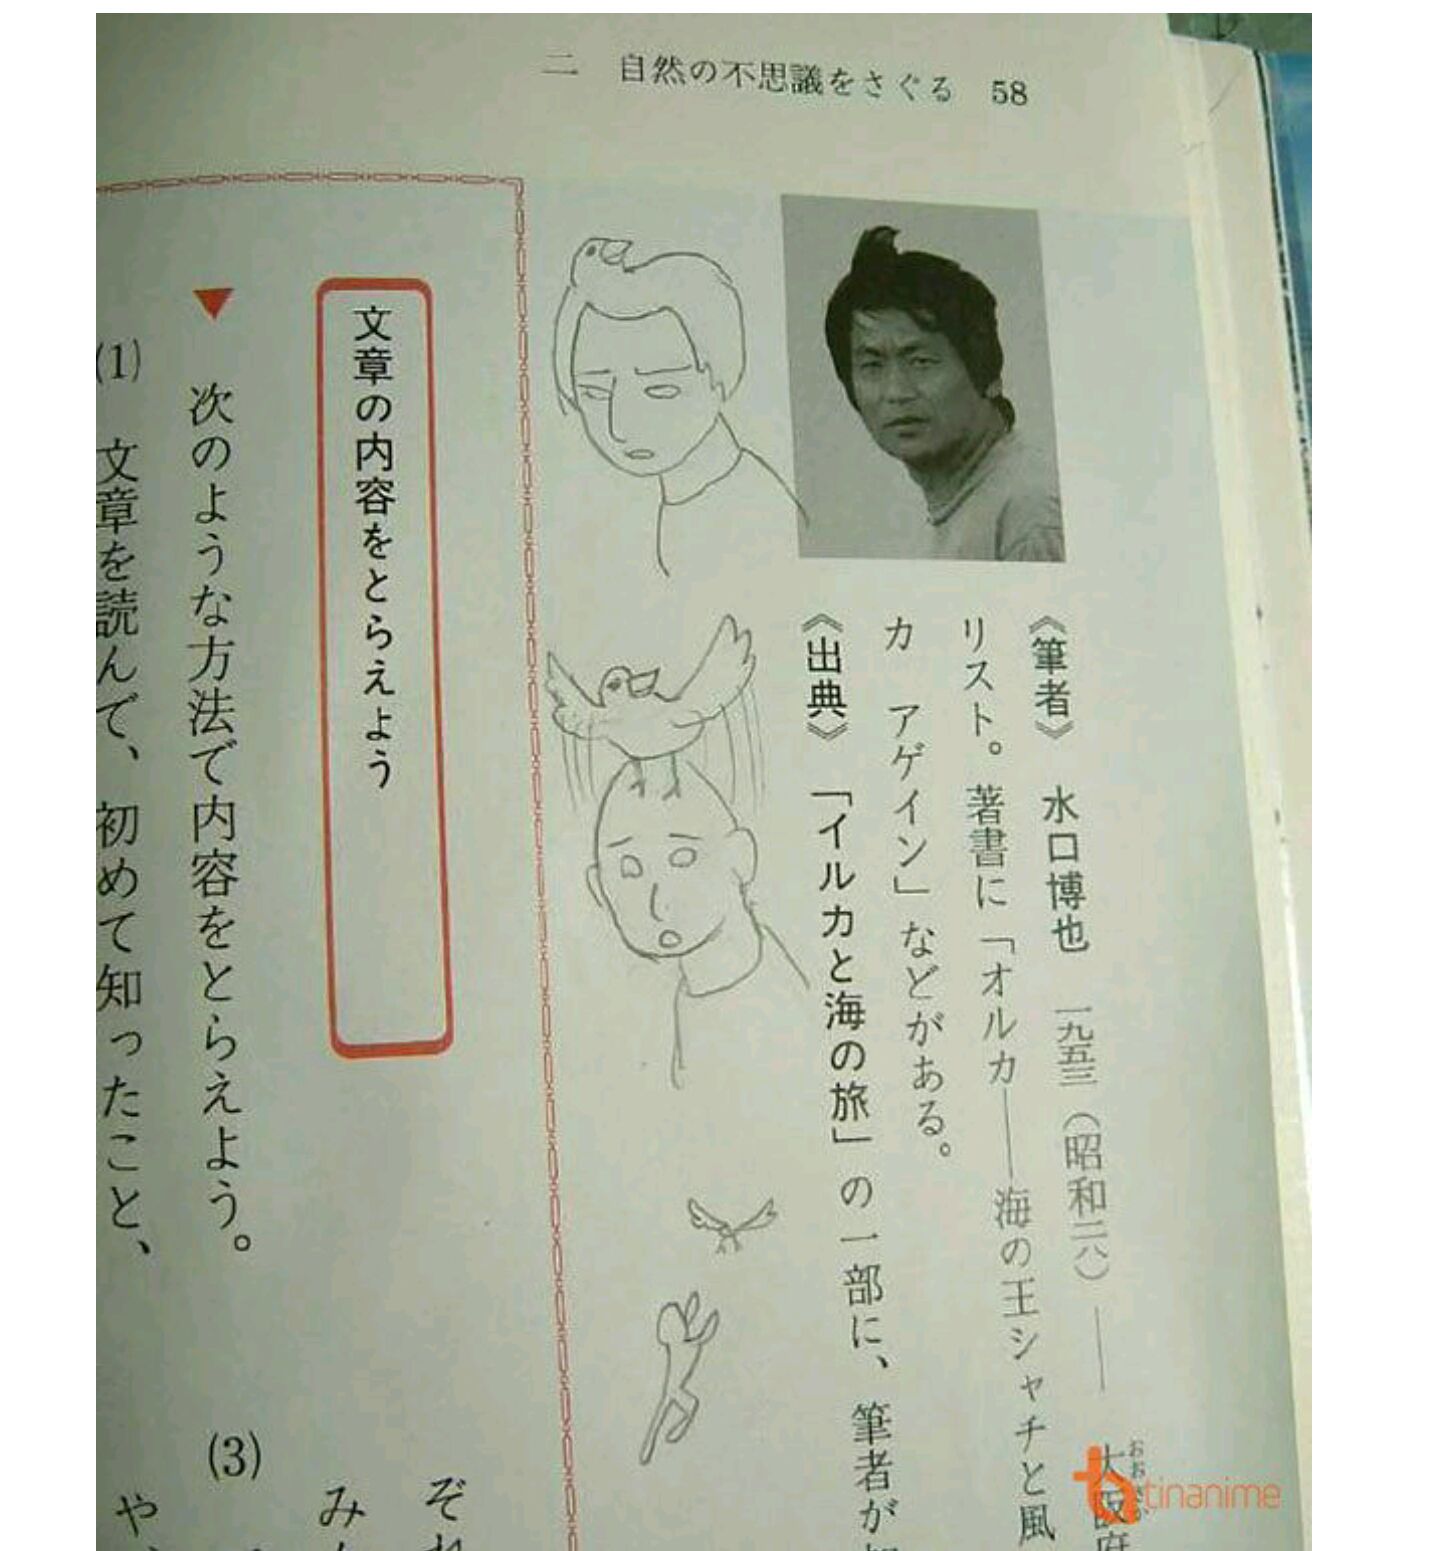 二 自然の不思議をさぐる 58
《筆者》 水口博也 一九五三(昭和二八)―― 大阪府
おおさか
リスト。著書に「オルカ――海の王シャチと風
カ アゲイン」などがある。
《出典》「イルカと海の旅」の一部に、筆者が
文章の内容をとらえよう
▼ 次のような方法で内容をとらえよう。
(1) 文章を読んで、初めて知ったこと、
ぞれ
み
(3)
や
tinanime